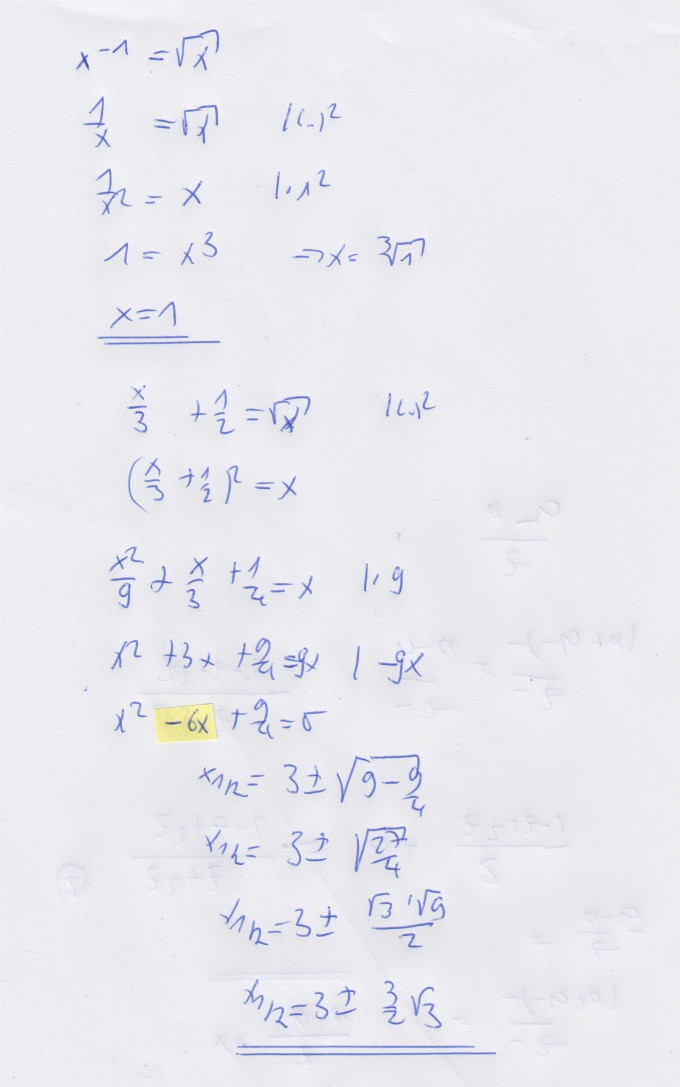 x⁻¹ = √x
1/x = √x |(..)²
1/x² = x |·x²
1 = x³ → x = ∛1
x = 1
x/3 + 1/2 = √x |(..)²
(x/3 + 1/2)² = x
x²/9 + x/3 + 1/4 = x |· 9
x² + 3x + 9/4 = 9x | -9x
x² - 6x + 9/4 = 0
x1/2 = 3 ± √(9 - 9/4)
x1/2 = 3 ± √(27/4)
x1/2 = 3 ± (√3 · √9)/2
x1/2 = 3 ± 3/2 √3